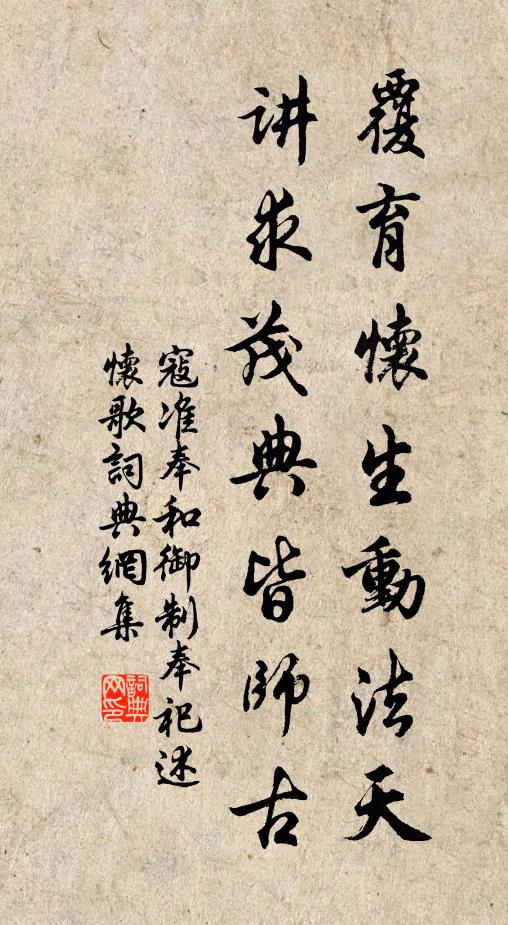 覆育懷生動法天
讲求茂典皆師古
寇准奉和御制奉祀述
懷歌詞典網集
詞典
网印